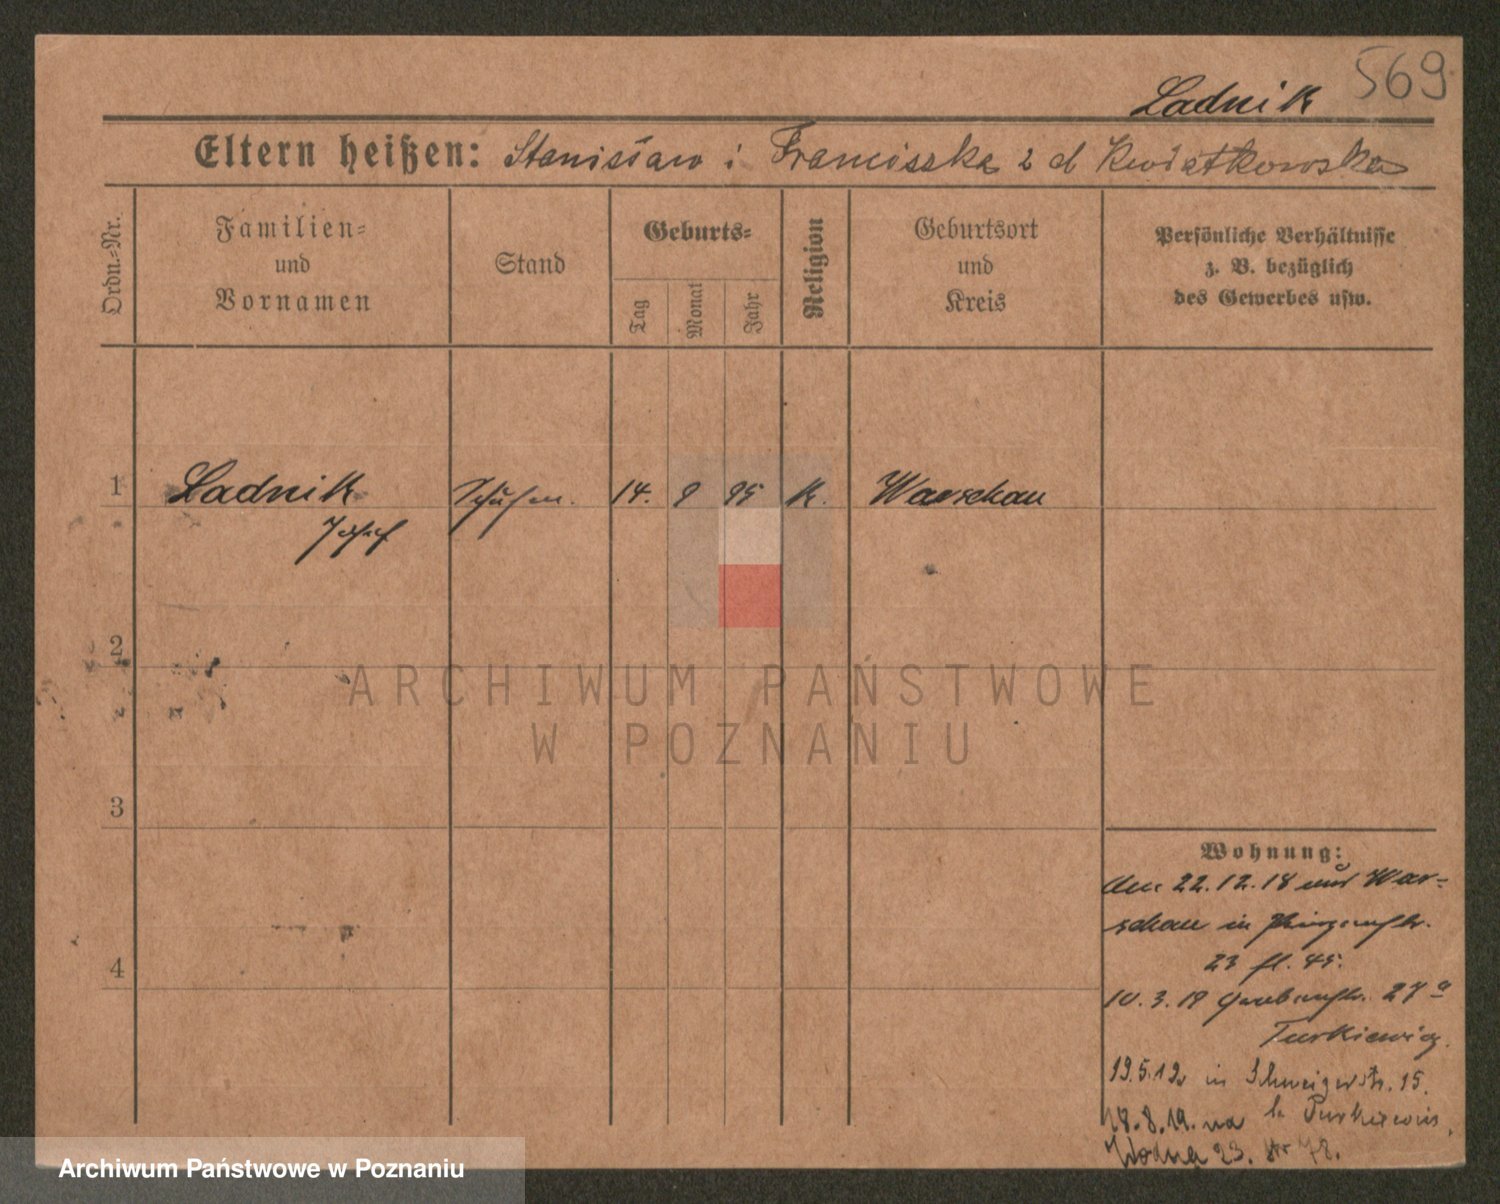 569
Ladnik
Eltern heißen: Stanisław i Franciszka z d Kwiatkowska
Ordn.-Nr.
Familien-
und
Vornamen
Stand
Geburts-
Tag
Monat
Jahr
Religion
Geburtsort
und
Kreis
Persönliche Verhältnisse
z. B. bezüglich
des Gewerbes usw.
1 Ladnik 14. 9 95 K. Warschau
Josef
2
3
4
Wohnung:
den 22.12.18 aus War-
schau in
23 45.
10.3.19 27 a
Turkiewicz.
19.5.19 in Schweizerstr. 15.
18.8.19. na b. Turkiewicz.
Wodną 23. 78.
ARCHIWUM PAŃSTWOWE
W POZNANIU
Archiwum Państwowe w Poznaniu